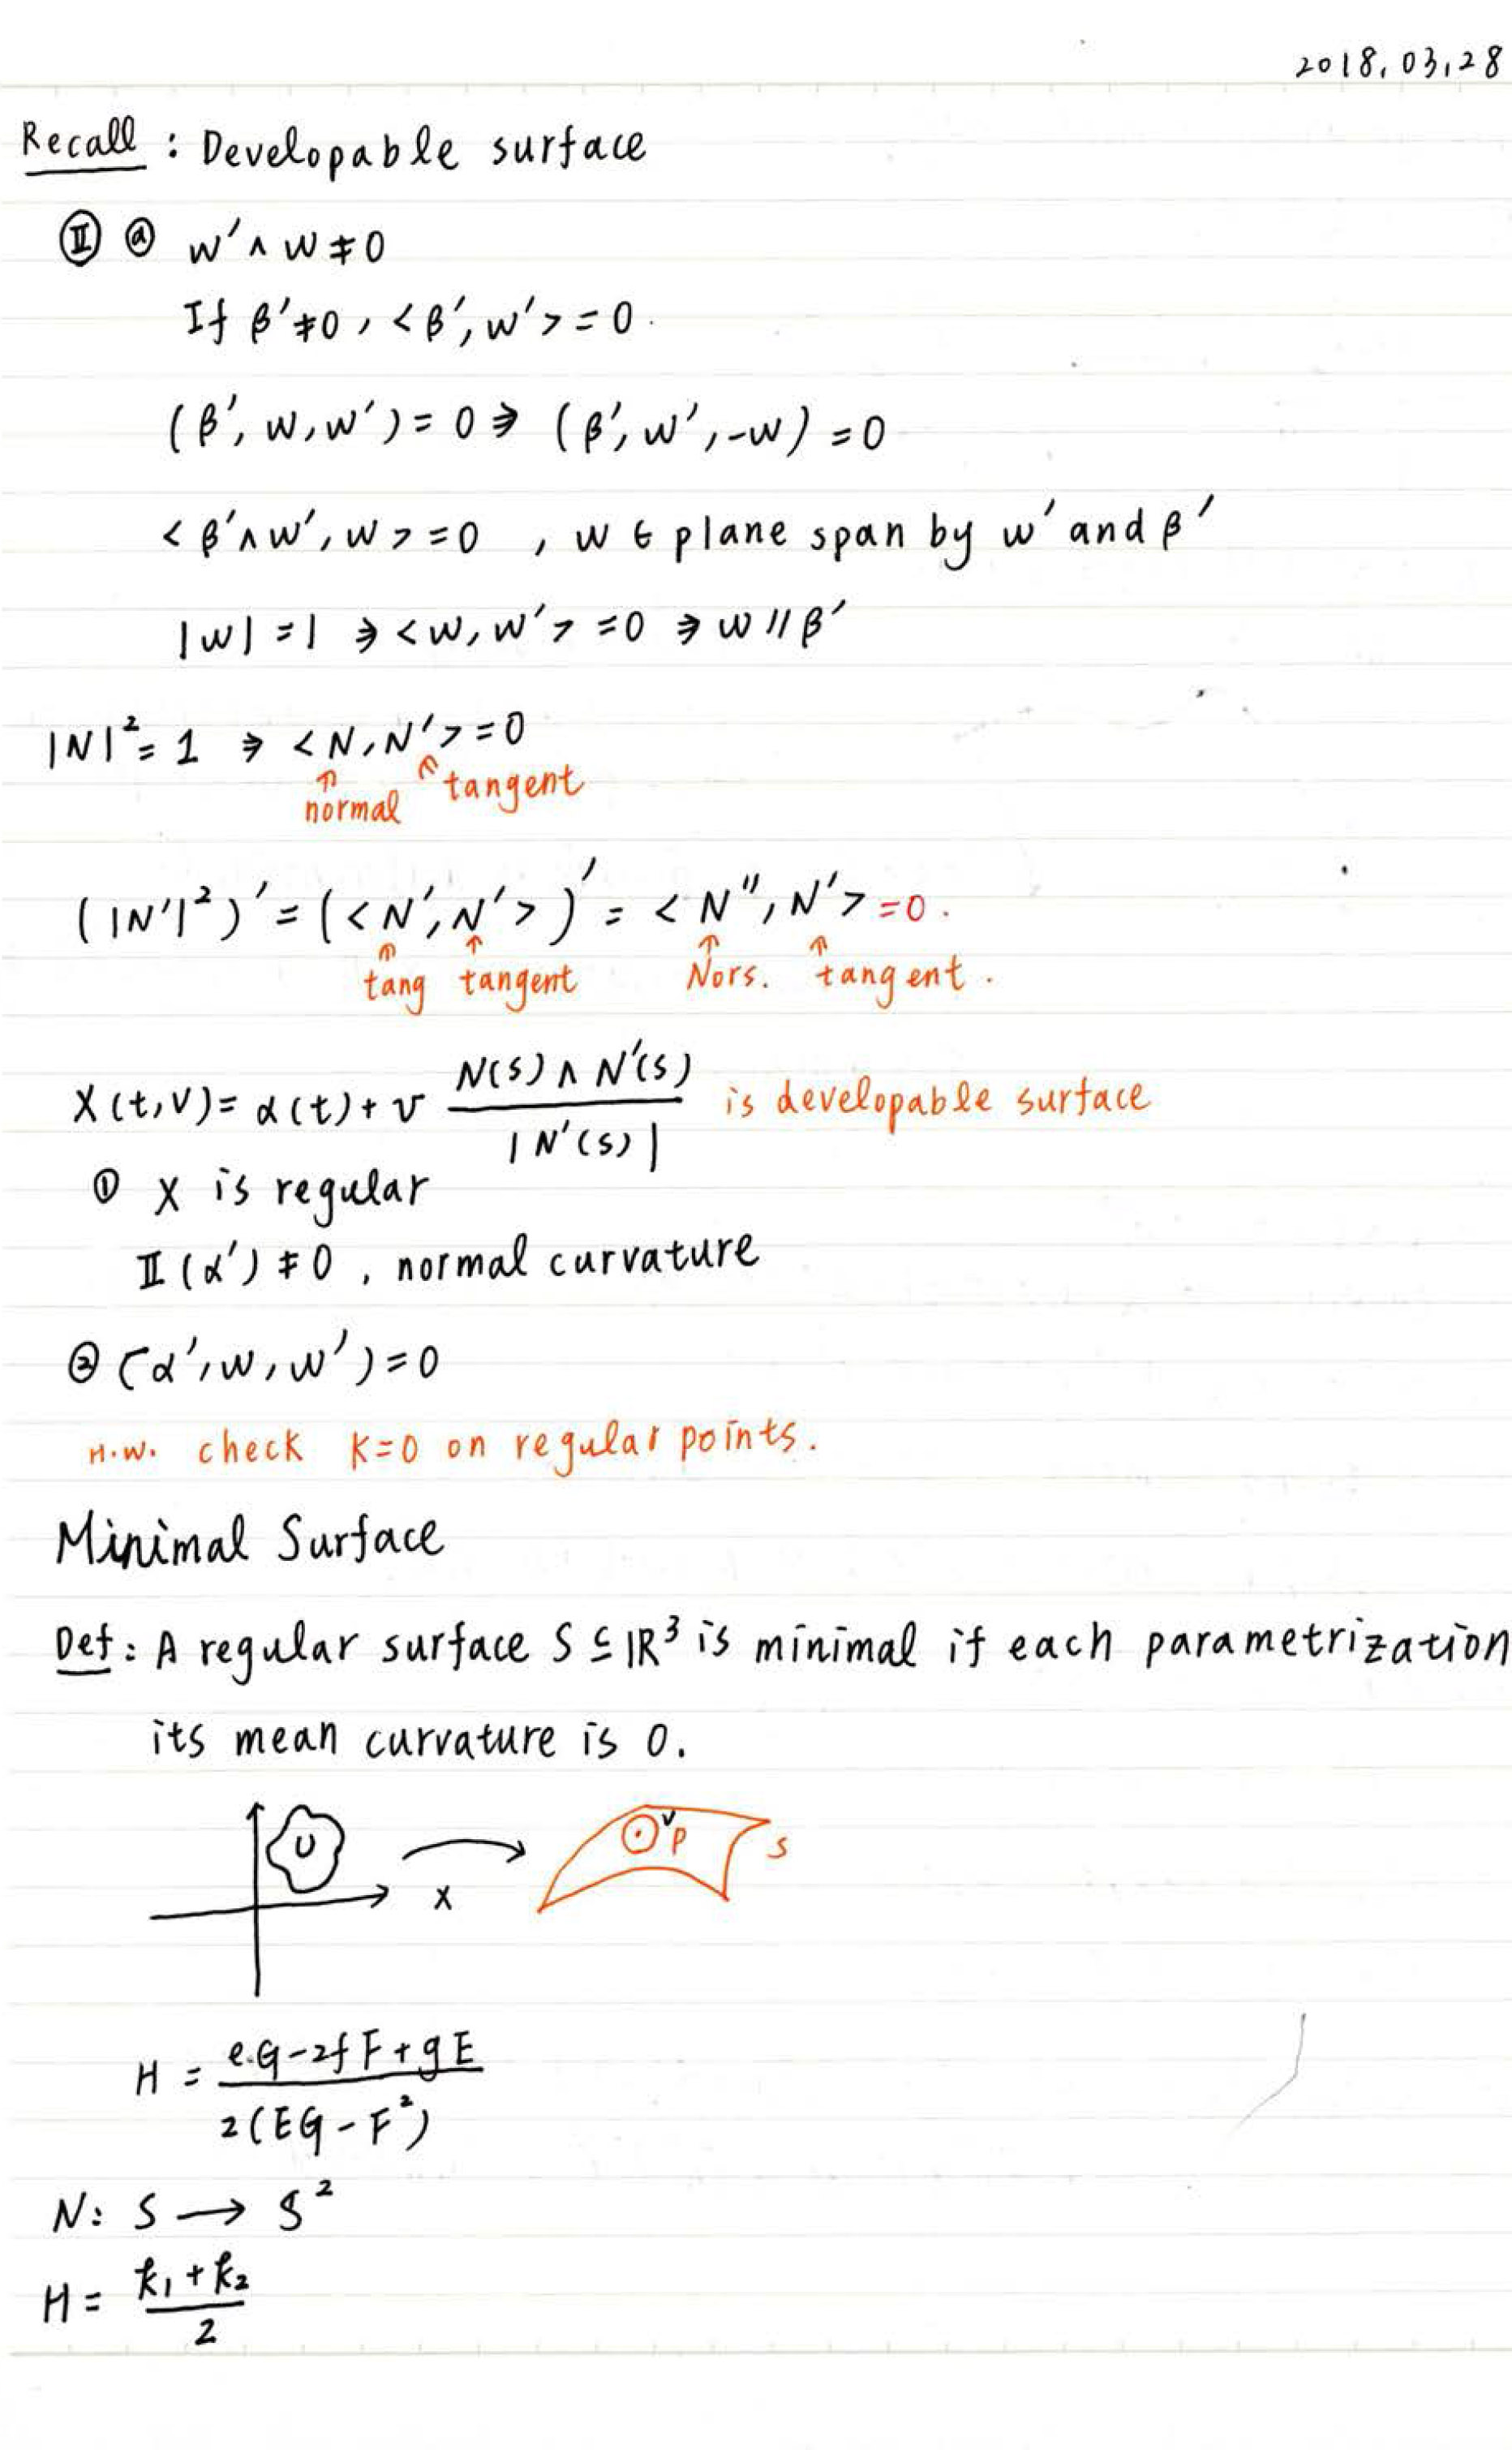 2018.03.28
Recall : Developable surface
Ⅱ ⓐ w' ∧ w ≠ 0
If β' ≠ 0 , < β', w' > = 0 .
( β', w, w' ) = 0 ⇒ ( β', w', -w ) = 0
< β' ∧ w', w > = 0 , w ∈ plane span by w' and β'
|w| = 1 ⇒ < w, w' > = 0 ⇒ w // β'
|N|² = 1 ⇒ < N, N' > = 0
↑ normal ↑ tangent
( |N'|² )' = ( < N', N' > )' = < N'', N' > = 0 .
↑ tang ↑ tangent ↑ Nors. ↑ tangent .
X(t,v) = α(t) + v N(s) ∧ N'(s) / |N'(s)| is developable surface
① X is regular
Ⅱ(α') ≠ 0 , normal curvature
② (α', w, w') = 0
H.W. check K=0 on regular points.
Minimal Surface
Def : A regular surface S ⊆ ℝ³ is minimal if each parametrization
its mean curvature is 0.
U X V p S
H = eG - 2fF + gE / 2(EG - F²)
N : S → S²
H = k₁ + k₂ / 2